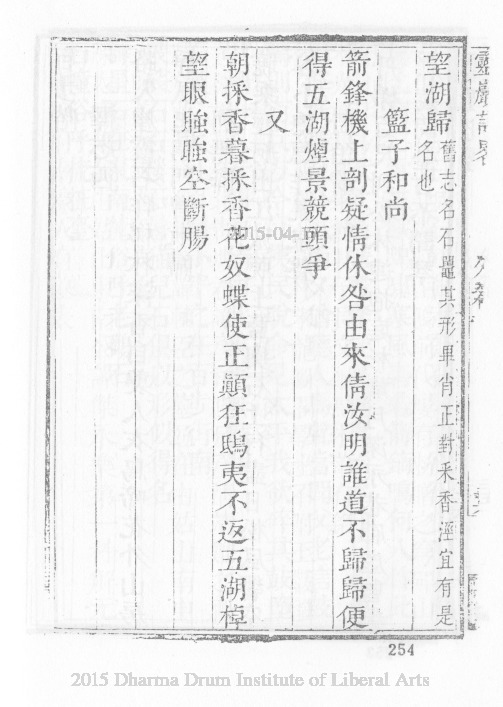 靈巖記略
望湖歸
舊志名石鼉其形畢肖正對采香涇宜有是
名也
籃子和尚
箭鋒機上剖疑情休咎由來倩汝明誰道不歸歸便
得五湖煙景競頭爭
又
朝採香暮採香花奴蝶使正顛狂鴟夷不返五湖棹
望眼空斷腸
2015-04-1
254
2015 Dharma Drum Institute of Liberal Arts